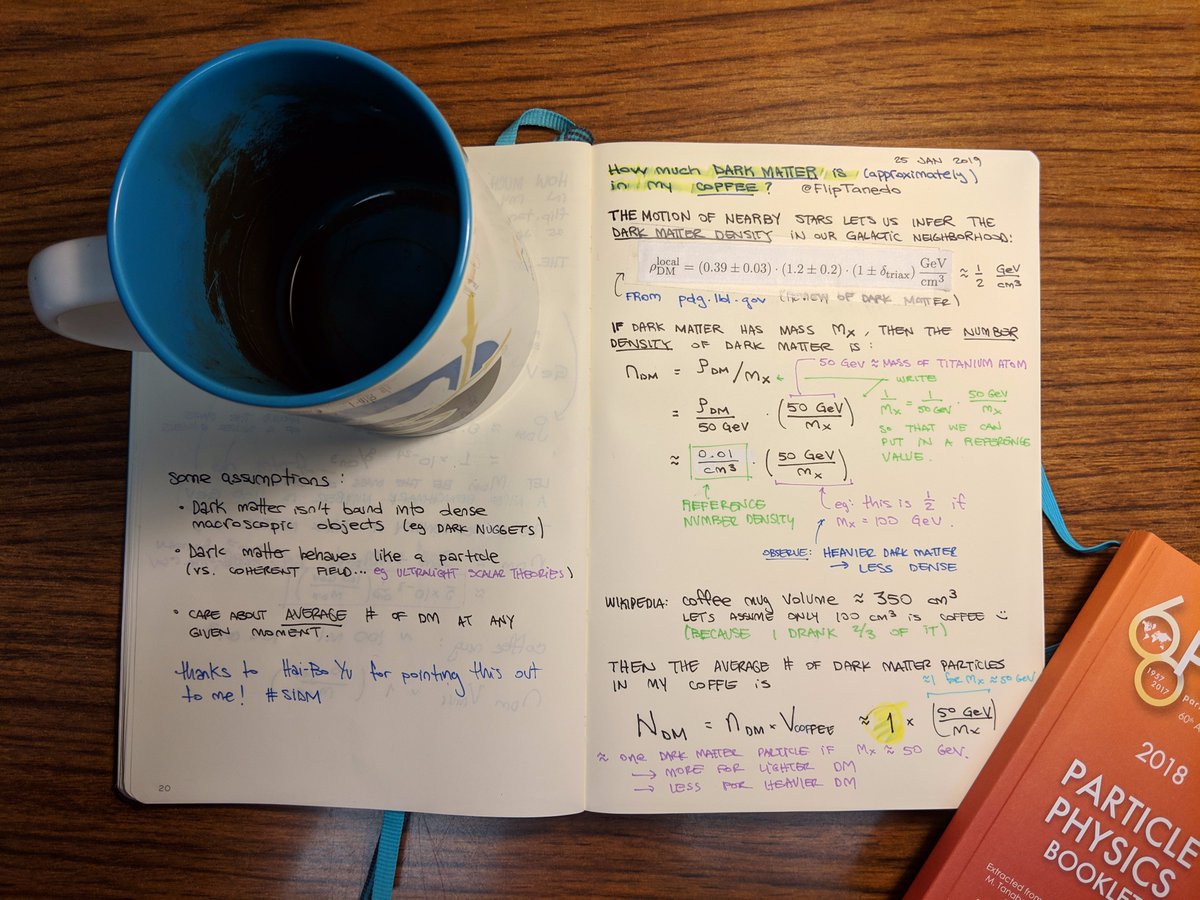 some assumptions:
• Dark matter isn't bound into dense
macroscopic objects (eg DARK NUGGETS)
• Dark matter behaves like a particle
(vs. COHERENT FIELD... eg ULTRALIGHT SCALAR THEORIES)
• CARE ABOUT AVERAGE # OF DM AT ANY
GIVEN MOMENT.
thanks to Hai-Bo Yu for pointing this out
to me! #SIDM
20
25 JAN 2019
How much DARK MATTER is (approximately)
in my COFFEE? @FlipTanedo
THE MOTION OF NEARBY STARS LETS US INFER THE
DARK MATTER DENSITY IN OUR GALACTIC NEIGHBORHOOD:
ρ_DM^local = (0.39 ± 0.03) · (1.2 ± 0.2) · (1 ± δ_triax) GeV/cm³ ≈ 1/2 GeV/cm³
FROM pdg.lbl.gov (REVIEW OF DARK MATTER)
IF DARK MATTER HAS MASS Mx, THEN THE NUMBER
DENSITY OF DARK MATTER IS:
50 GeV ≈ MASS OF TITANIUM ATOM
n_DM = ρ_DM/mx
WRITE
1/Mx = 1/50 GeV · 50 GeV/Mx
SO THAT WE CAN
PUT IN A REFERENCE
VALUE.
= ρ_DM/50 GeV · (50 GeV/Mx)
≈ 0.01/cm³ · (50 GeV/Mx)
REFERENCE
NUMBER DENSITY
eg: this is 1/2 if
Mx = 100 GeV.
OBSERVE: HEAVIER DARK MATTER
→ LESS DENSE
WIKIPEDIA: coffee mug volume ≈ 350 cm³
LET'S ASSUME ONLY 100 cm³ IS COFFEE :)
(BECAUSE I DRANK 2/3 OF IT)
THEN THE AVERAGE # OF DARK MATTER PARTICLES
IN MY COFFEE IS
≈1 for Mx ≈ 50 GeV
N_DM = n_DM × V_COFFEE ≈ 1 × (50 GeV/Mx)
≈ ONE DARK MATTER PARTICLE IF Mx ≈ 50 GeV.
→ MORE FOR LIGHTER DM
→ LESS FOR HEAVIER DM
60
1957
2017
60th
2018
PARTICLE
PHYSICS
BOOKLET
Extracted from